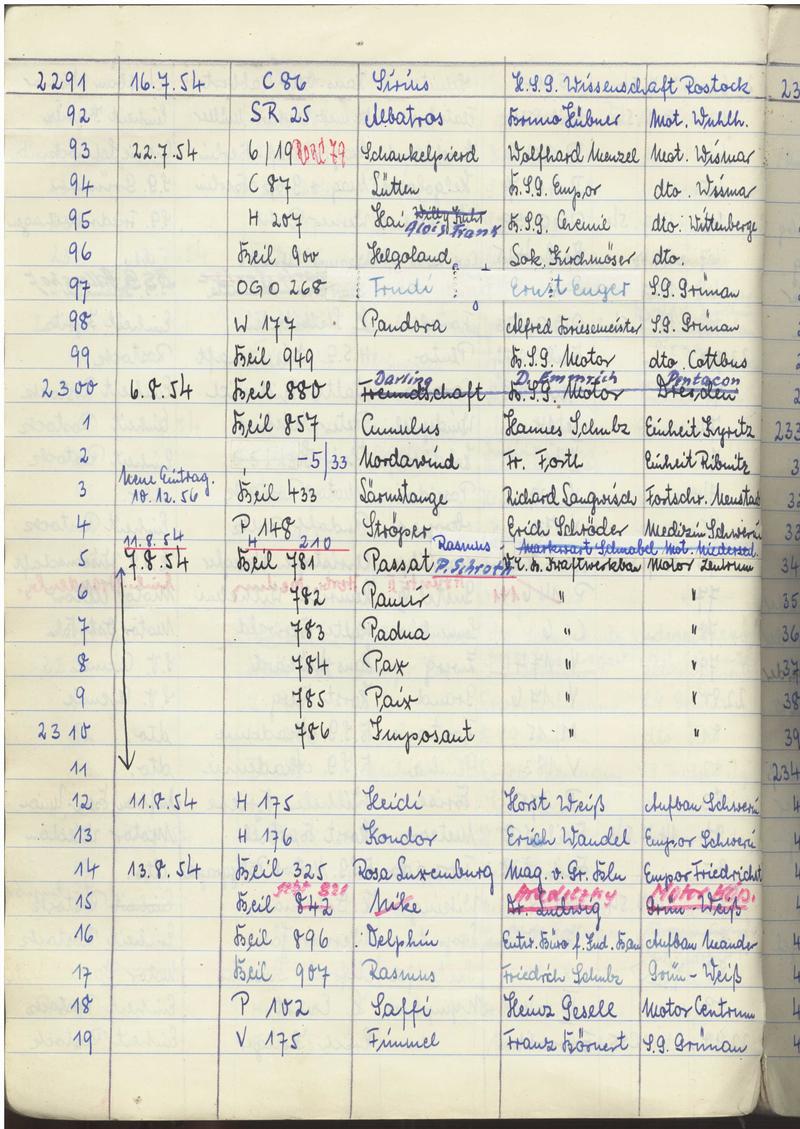 2291 16.7.54 C 86 Sirius H.S.G. Wissenschaft Rostock
92 SR 25 Albatros Bruno Hübner Mot. Wuhlh.
93 22.7.54 6/19 79 Schaukelpferd Wolfhard Menzel Mot. Wismar
94 C 87 Lütten B.S.G. Empor dto. Wismar
95 H 207 Hai Willy Kuhr B.S.G. Chemie dto. Wittenberge
Alois Frank
96 Beil 900 Helgoland Sek. Kirchmöser dto.
97 OGO 268 Trudi Ernst Enger S.G. Grünau
98 W 177 Pandora Alfred Griesemeister S.G. Grünau
99 Beil 949 B.S.G. Motor dto Cottbus
Darling D. Emmrich Pentacon
2300 6.8.54 Beil 880 Freundschaft B.S.G. Motor Dresden
1 Beil 857 Cumulus Hannes Schulz Einheit Kyritz
2 -5/33 Nordwind Fr. Forth Einheit Ribnitz
Neue Eintrag.
3 10.12.56 Beil 433 Richard Fortschr. Neustad
4 P 148 Ströper Erich Schröder Medizin Schwerin
11.8.54 H 210 Rasmus Markwart Schnabel Mot. Niedersed.
5 7.8.54 Beil 781 Passat P. Schroth Motor Zentrum
6 782 Pamir " "
7 783 Padua " "
8 784 Pax " "
9 785 Paix " "
2310 786 Imposant " "
11
12 11.8.54 H 175 Heidi Horst Weiß Aufbau Schwerin
13 H 176 Kondor Erich Wandel Empor Schwerin
14 13.8.54 Beil 325 Rosa Luxemburg Mag. v. Gr. Bln Empor Friedrichst
jetzt 821 Motor Köp.
15 Beil 842 Nike Dr. Ludwig Grün-Weiß
16 Beil 896 Delphin Entw. Büro f. Ind. Bau Aufbau
17 Beil 907 Rasmus Friedrich Schulz Grün-Weiß
18 P 102 Saffi Heinz Gesell Motor Centrum
19 V 175 Fimmel Franz S.G. Grünau